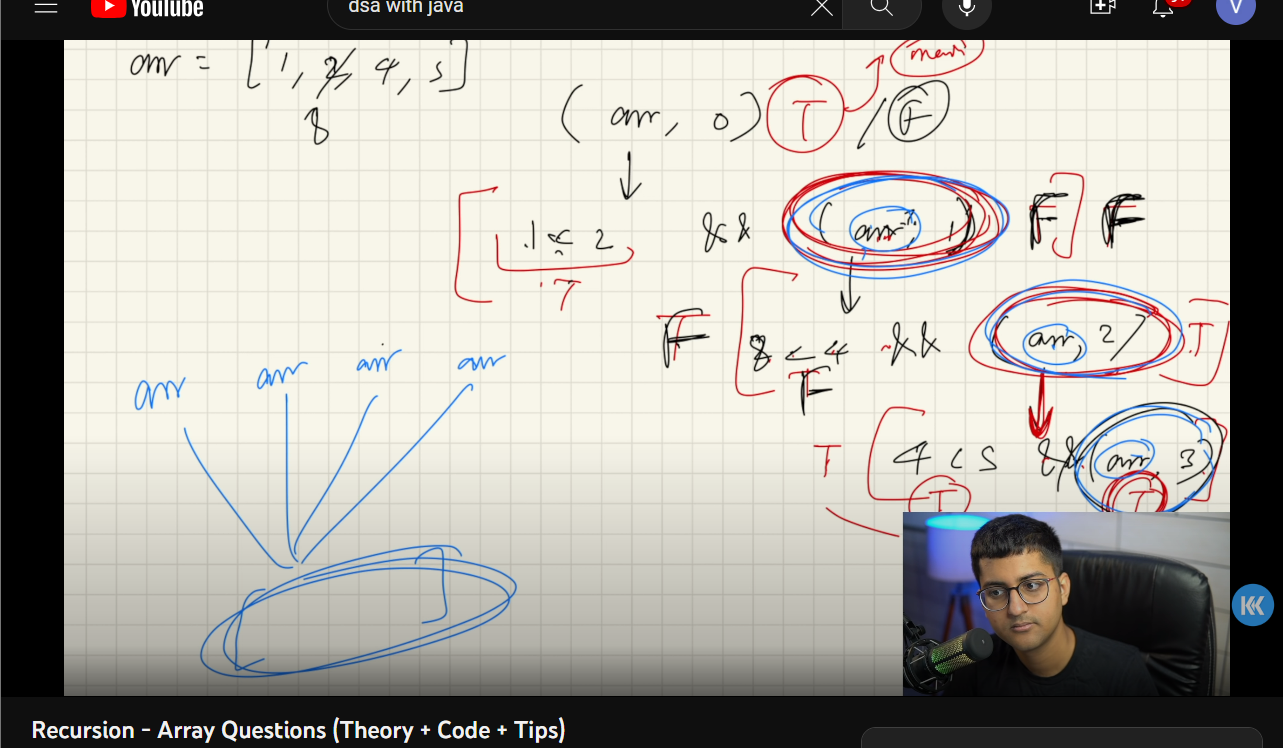 YouTube
dsa with java
V
arr = [1, 2, 4, 5]
8
main
(arr, 0) T / F
[1 < 2 && (arr, 1)] F F
T
F [8 < 4 && (arr, 2)] T
F
T [4 < 5 && (arr, 3)]
T T
arr arr arr arr
K
Recursion - Array Questions (Theory + Code + Tips)